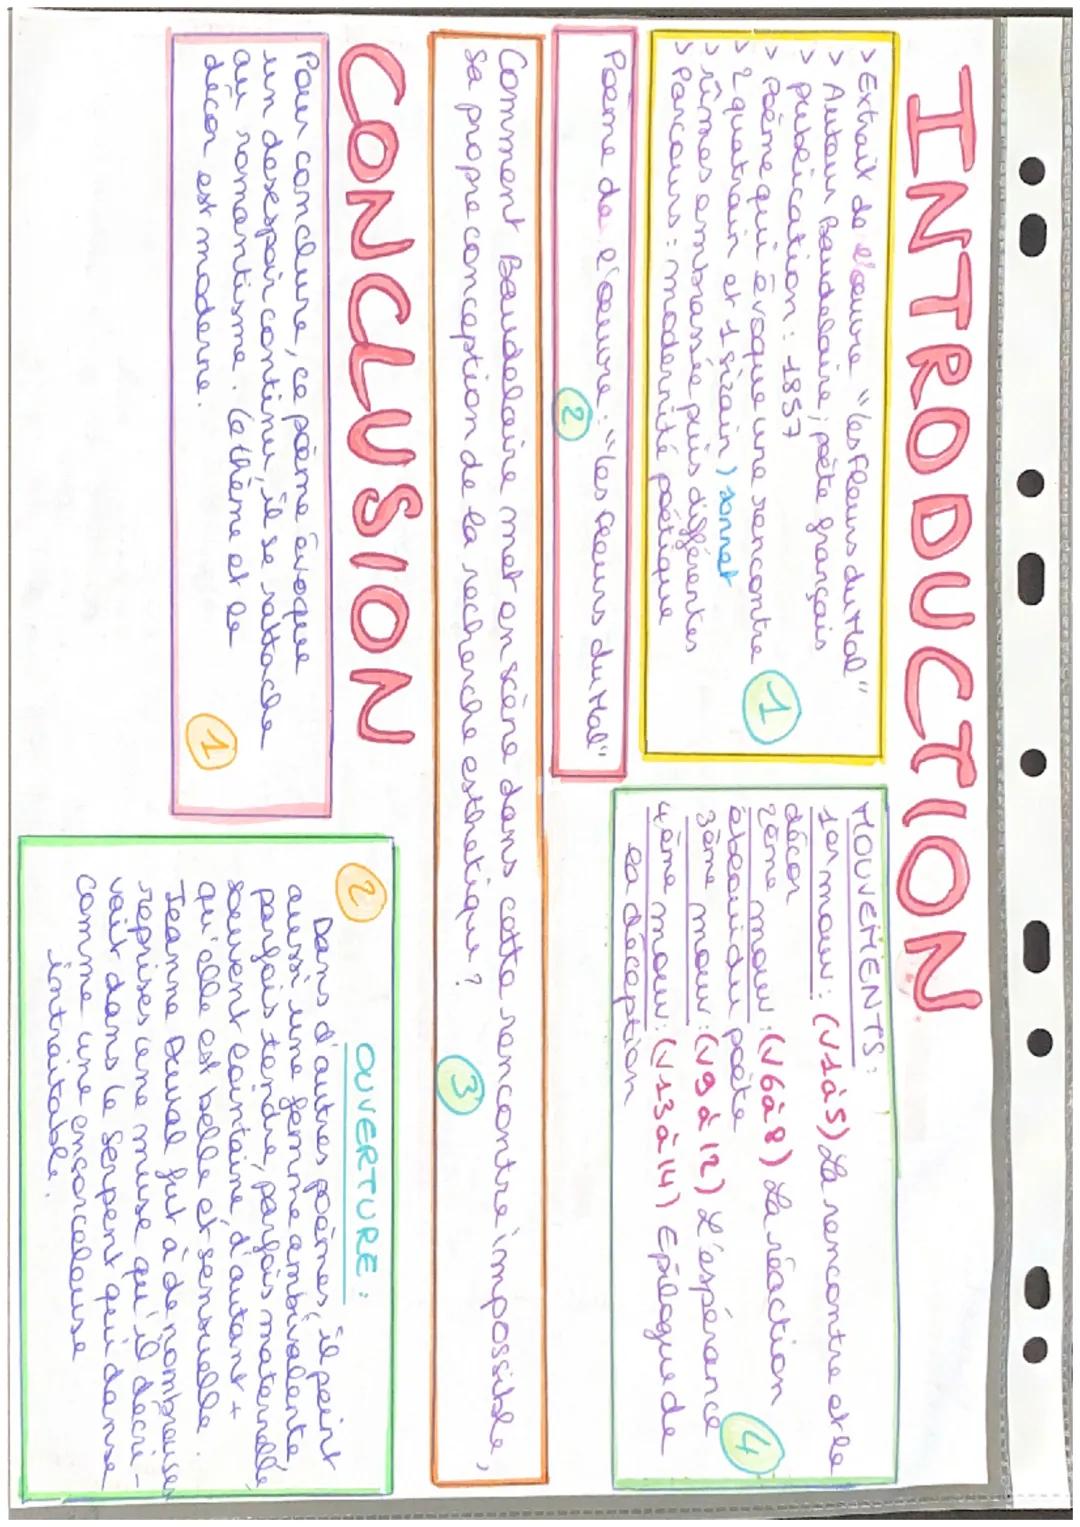 INTRODUCTION
> Extrait de l'oeuvre "les Fleurs du Mal"
> Auteur Baudelaire, poète français
> publication : 1857
> Poème qui évoque une rencontre
> 2 quatrain et 1 sizain ) sonnet
> rîmes embrassée puis différentes
> Parcours : modernité poétique
1
Poème de l'oeuvre : "les fleurs du Mal"
2
MOUVEMENTS :
1er mouv : (v1 à 5) La rencontre et le
décor
2ème mouv : (v6 à 8) La réaction
ébloui du poète
3ème mouv : (v9 à 12) L'éspérance
4ème mouv : (v13 à 14) Epilogue de
la déception
4
Comment Baudelaire met en scène dans cette rencontre impossible,
sa propre conception de la recherche esthetique ?
3
CONCLUSION
Pour conclure, ce poème évoque
un desespoir continu, il se rattache
au romantisme. Le thème et le
décor est moderne.
1
2
OUVERTURE :
Dans d'autres poèmes, il peint
aussi une femme ambivalente
parfois tendre, parfois maternelle,
souvent lointaine, d'autant +
qu'elle est belle et sensuelle.
Jeanne Duval fut à de nombreuses
reprises une muse qu'il décri-
vait dans le Serpent qui danse
comme une ensorceleuse
intraitable.